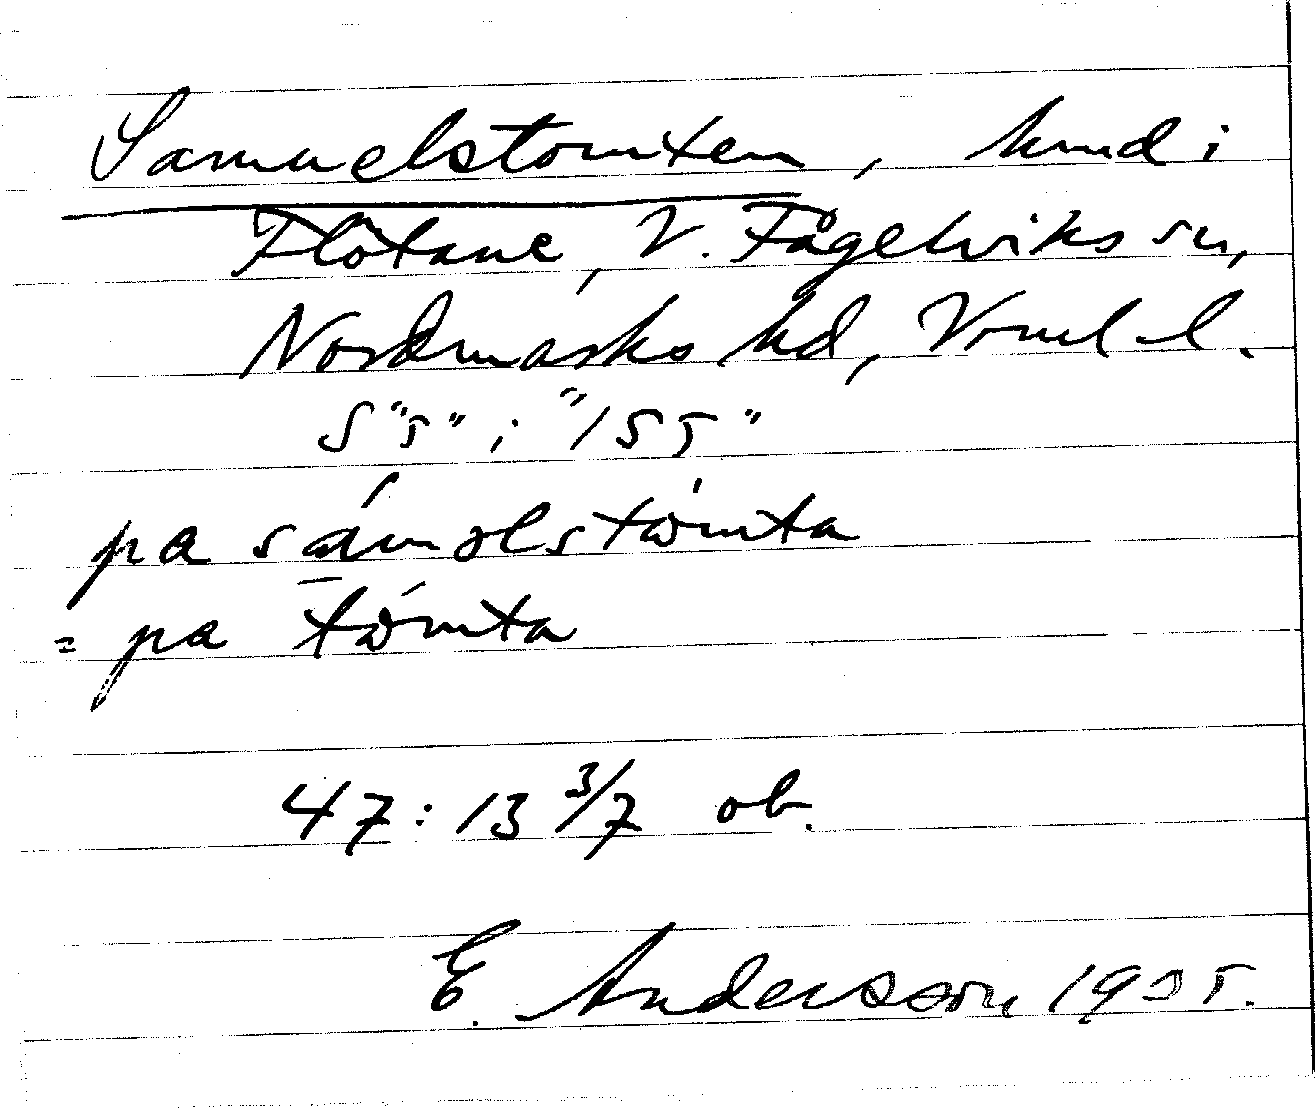 Samuelstomten, hmd i
Flötane, V. Fågelviks sn,
Nordmarks hd, Vrml l.
S "5" i "155"
pa sámolstòmta
= pa tòmta
47:13 3/7 ob.
E. Andersson 1935.